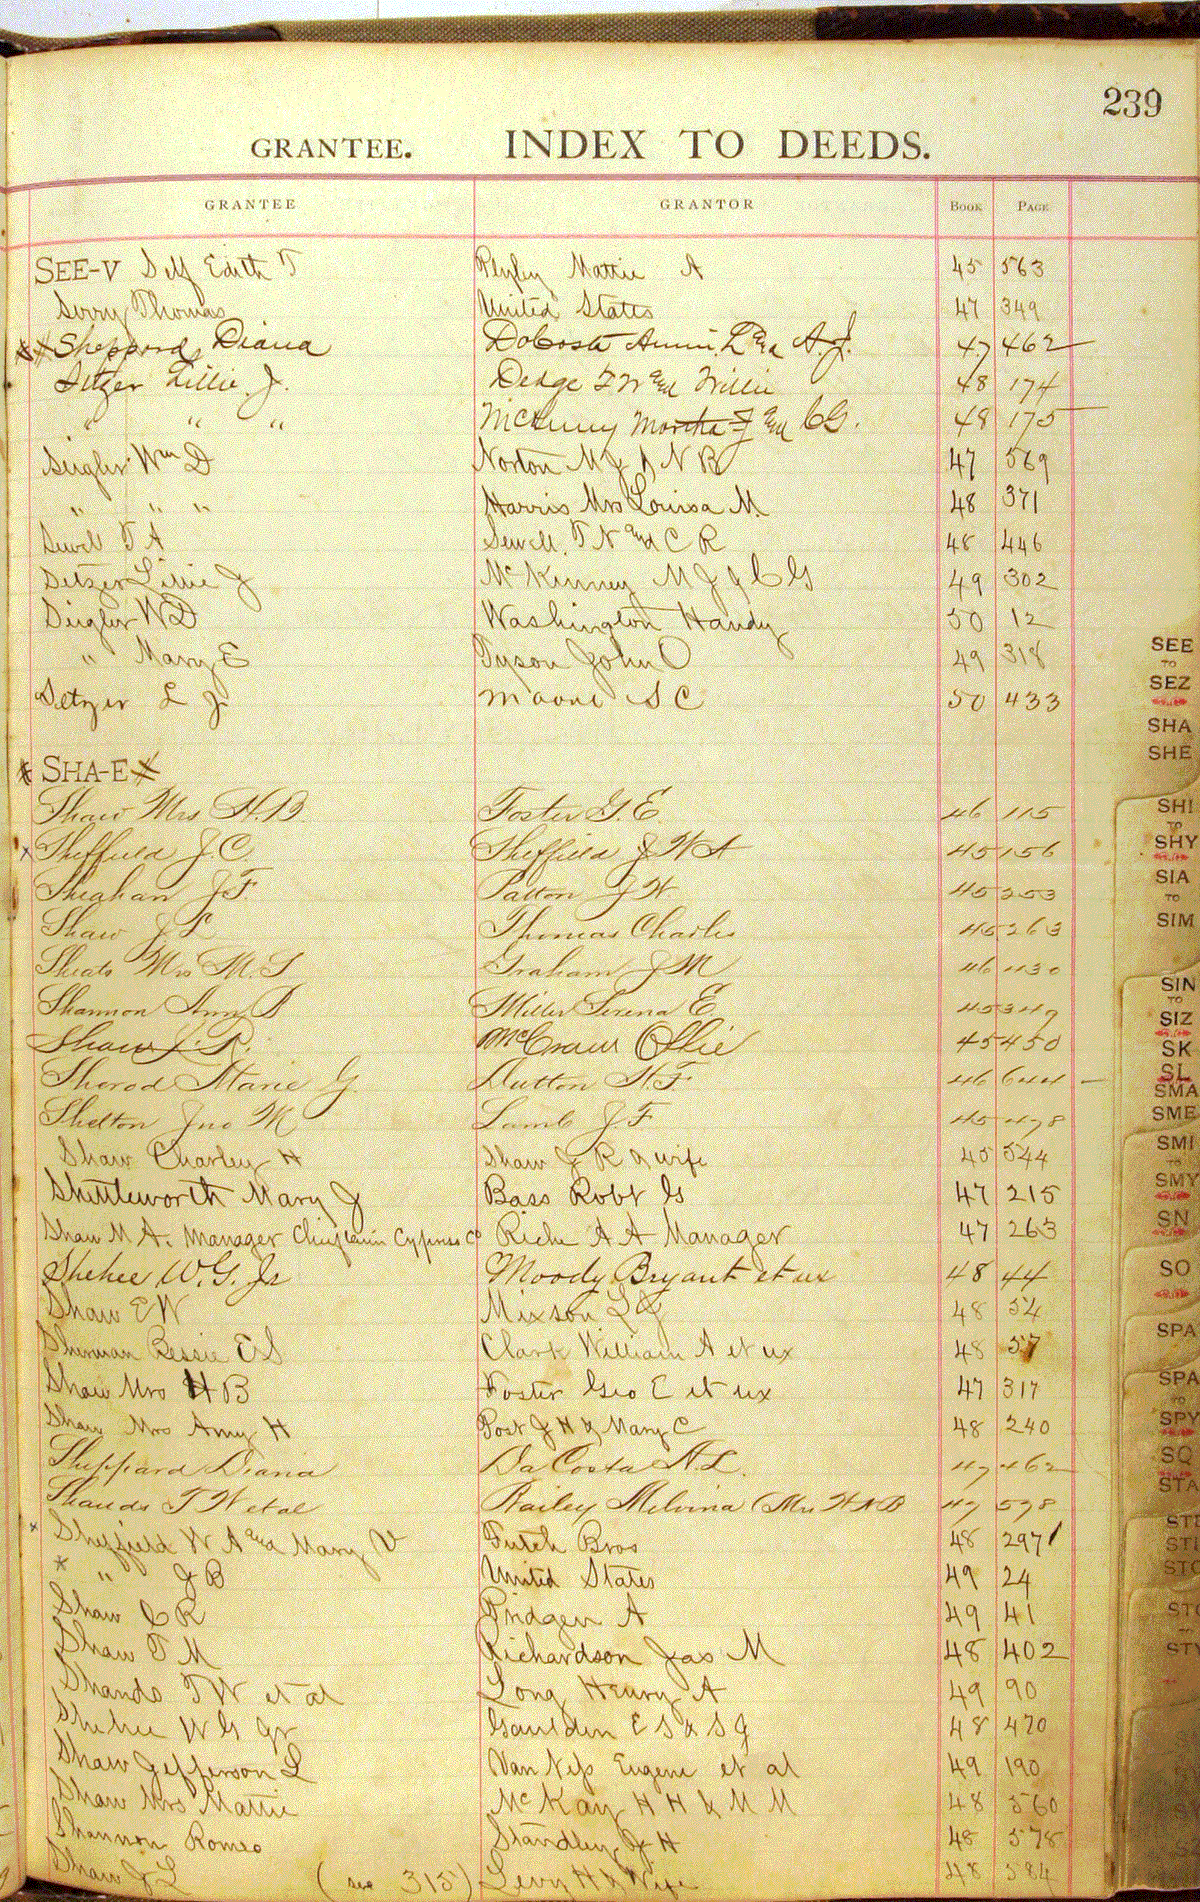 239
GRANTEE. INDEX TO DEEDS.
GRANTEE GRANTOR BOOK PAGE
SEE-V Self Edith T Plyly Mattie A 45 563
Thomas United States 47 349
Sheppard Diana DaCosta Annie L and A.J. 47 462
Setzer Lillie J. Dedge and Willie 48 174
" " " McKinney Martha J and C G. 48 175
Seigler Wm D Norton M J & N B 47 569
" " " Harris Mrs Louisa M. 48 371
Sewell T A Sewell, T N and C R 48 446
Setzer Lillie J McKinney M J & C G 49 302
Seigler W D Washington Handy 50 12
" Mary E Dyson John O 49 318
Setzer L J Moore S C 50 433
SHA-E
Shaw Mrs H.B. Foster G.E. 46 115
Sheffield J.C. Sheffield J W A 45 156
Sheahan J.F. Patton J W. 45 253
Shaw J L Thomas Charles 45 263
Sheats Mrs M.S Graham J M 46 430
Shannon Ann D Miller Serena E. 45 349
Shaw J. R. McCraw Ollie 45 450
Sherod Marie G. Dutton H F 46 644
Shelton Jno M Lamb J F 45 498
Shaw Charley H Shaw J R & wife 45 544
Shuttleworth Mary J Bass Robt G 47 215
Shaw M A. Manager Chieftain Cypress Co Riche A A Manager 47 263
Shehee W.G. Jr Moody Bryant et ux 48 44
Shaw E W Mixson L J 48 54
Sherman Bessie E S Clark William A et ux 48 57
Shaw Mrs H B Foster Geo E et ux 47 317
Shaw Mrs Amy H Post J H & Mary C 48 240
Sheppard Diana DaCosta A.L. 47 462
Shands T W et al Bailey Melvina (Mrs W A B 47 598
Sheffield W A and Mary V Futch Bros 48 297
" J B United States 49 24
Shaw C R Pridgen A 49 41
Shaw T M Richardson Jas M 48 402
Shands T W et al Long Henry A 49 90
Shehee W G Jr Gaulden E S & S J 48 470
Shaw Jefferson L Van Ness Eugene et al 49 190
Shaw Mrs Mattie McKay H H & M M 48 560
Shannon Romeo Standley J H 48 578
Shaw J L (see 315) Levy H & Wife 48 584
SEE
TO
SEZ
SHA
SHE
SHI
TO
SHY
SIA
TO
SIM
SIN
TO
SIZ
SK
SL
SMA
SME
SMI
TO
SMY
SN
SO
SPA
SPA
TO
SPY
SQ
STA